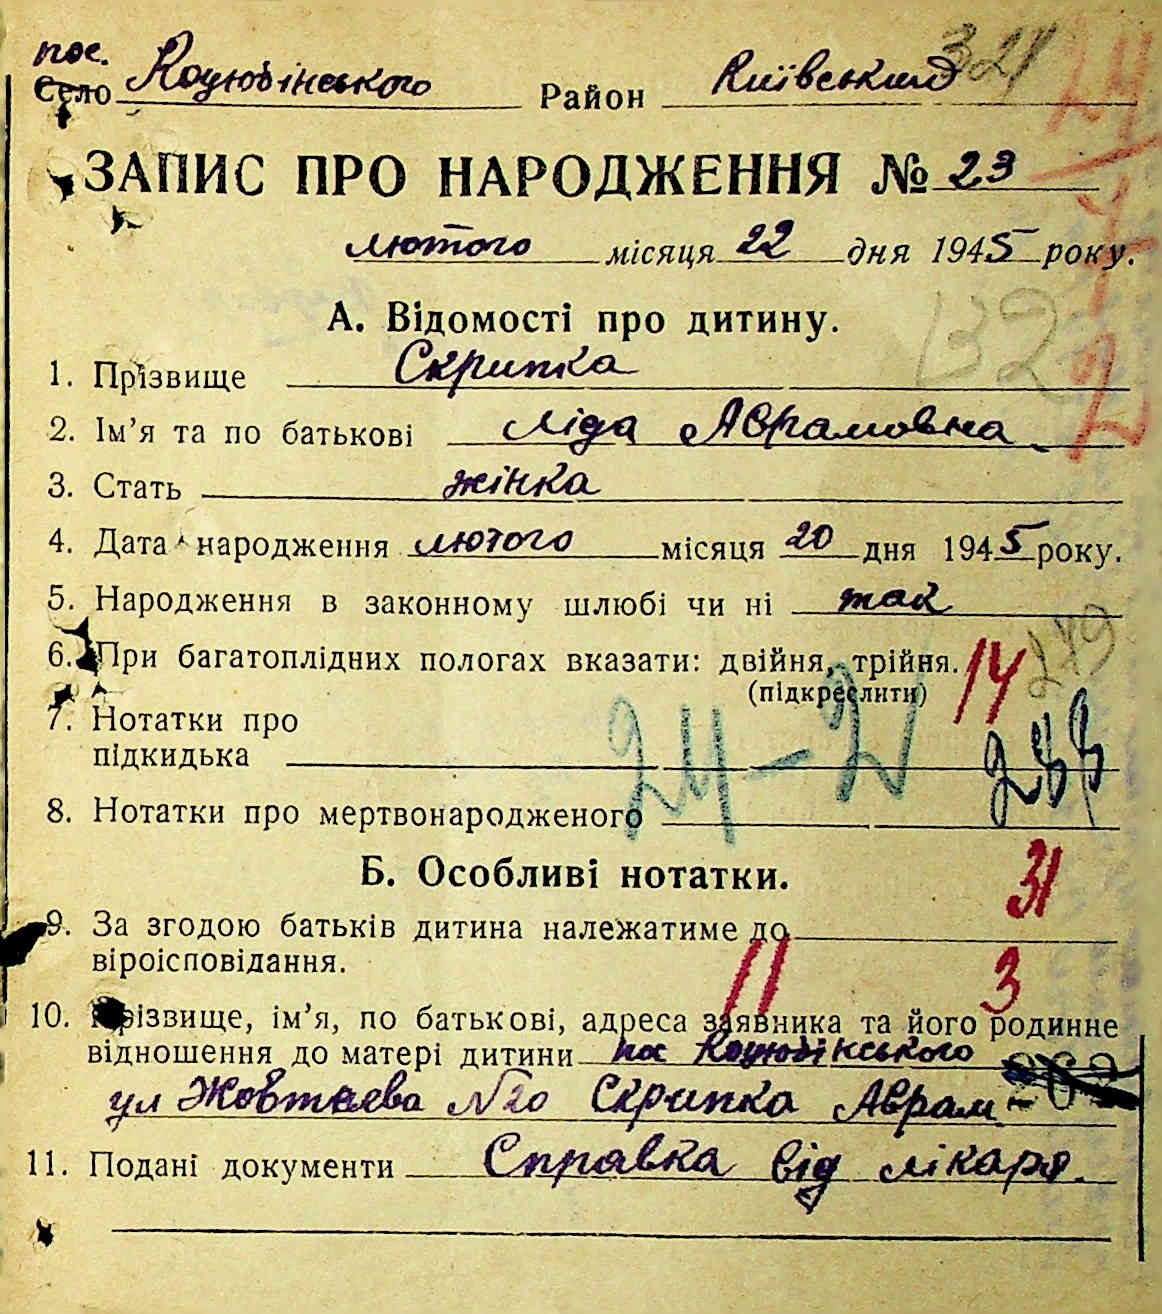 пос. Коцюбінського Район Київський 321
Село
ЗАПИС ПРО НАРОДЖЕННЯ № 23
лютого місяця 22 дня 1945 року.
А. Відомості про дитину.
132
1. Прізвище Скрипка
2. Ім’я та по батькові Ліда Аврамовна
3. Стать жінка
4. Дата народження лютого місяця 20 дня 1945 року.
5. Народження в законному шлюбі чи ні так
6. При багатоплідних пологах вказати: двійня, трійня. 14 279
(підкреслити)
7. Нотатки про
підкидька 24-2 288
8. Нотатки про мертвонародженого
Б. Особливі нотатки.
31
9. За згодою батьків дитина належатиме до
віроісповідання. 11 3
10. Прізвище, ім’я, по батькові, адреса заявника та його родинне
відношення до матері дитини пос Коцюбінського
ул Жовтнева №20 Скрипка Аврам
11. Подані документи Справка від лікаря.